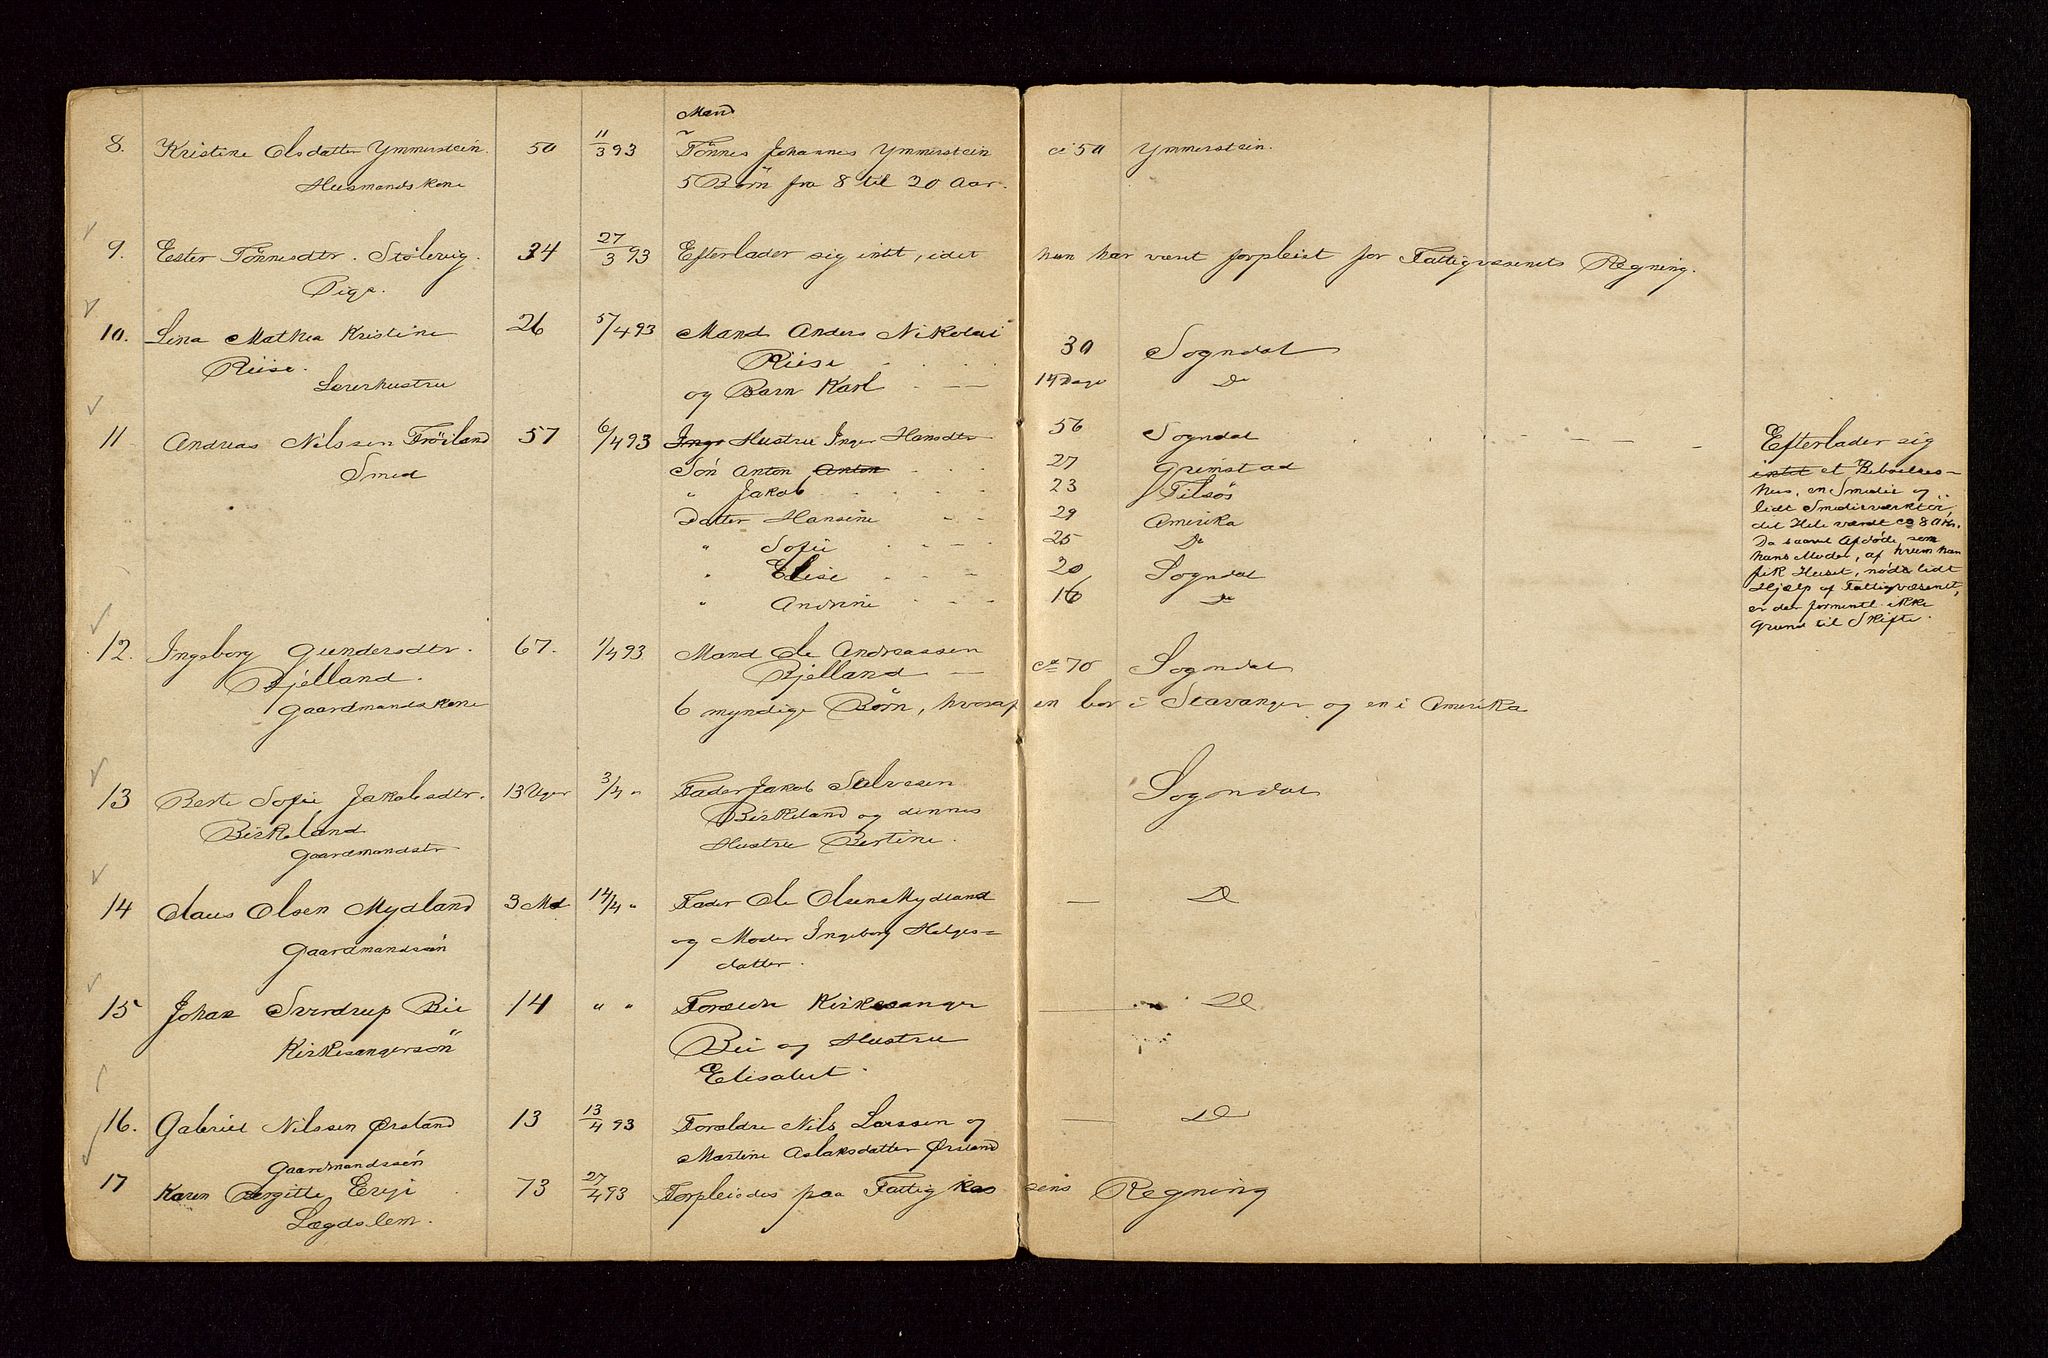 Mand
8. Kristine Olsdatter Ymmerstein. 50 11/3 93 Tönnes Johannes Ymmerstein ca 50 Ymmerstein.
Husmandskone 5 Börn fra 8 til 20 Aar.
9. Ester Tönnesdtr. Stölevig. 34 27/3 93 Efterlader sig intet, idet hun har været forpleiet for Fattigvæsenets Regning.
Pige.
10. Lina Mathea Kristine 26 5/4 93 Mand Anders Nikolai 30 Sogndal
Riise. Riise
Lærerhustru og Barn Karl 14 Dage Do
11 Andreas Nilssen Fröiland 57 6/4 93 Inge Hustru Inger Hansdtr 56 Sogndal Efterlader sig
Smed Sön Anton Anton 27 Grimstad intet et Beboelses=
" Jakob 23 Filsös hus, en Smedie og
Datter Hansine 29 Amerika lidt Smedeværktöi,
" Sofie 25 Do det Hele værdt ca 80 Kr.
" Elise 20 Sogndal Da saavel Afdöde, som
" Andrine 16 Do hans Moder, af hvem han
fik Huset, nöd lidt
Hjælp af Fattigvæsenet,
er der formentl. ikke
Grund til Skifte.
12. Ingeborg Gundersdtr. 67. 1/4 93 Mand Ole Andreassen ca 70 Sogndal
Bjelland. Bjelland
Gaardmandskone 6 myndige Börn, hvoraf en bor i Stavanger og en i Amerika
13 Berte Sofie Jakobsdtr. 13 Uger 3/4 " Fader Jakob Salvesen Sogndal
Birkeland Birkeland og dennes
Gaardmandsdtr Hustru Bertine.
14 Claus Olsen Mydland 3 Md 14/4 " Fader Ole Olsen Mydland — Do
Gaardmandssön og Moder Ingeborg Helges=
datter.
15 Johan Sverdrup Bie 14 " " Forældre Kirkesanger — Do
Kirkesangersön Bie og Hustru
Elisabet.
16. Gabriel Nilssen Ørsland 13 13/4 93 Forældre Nils Larssen og — Do
Gaardmandssön Martine Aslaksdatter Ørsland
17 Karen Bergitte Eeje 73 27/4 93 Forpleiedes paa Fattigkassens Regning
Lægdslem.